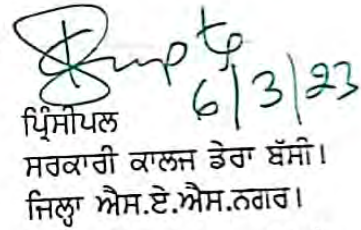 Gupta
6/3/23
ਪ੍ਰਿੰਸੀਪਲ
ਸਰਕਾਰੀ ਕਾਲਜ ਡੇਰਾ ਬੱਸੀ।
ਜਿਲ੍ਹਾ ਐਸ.ਏ.ਐਸ.ਨਗਰ।